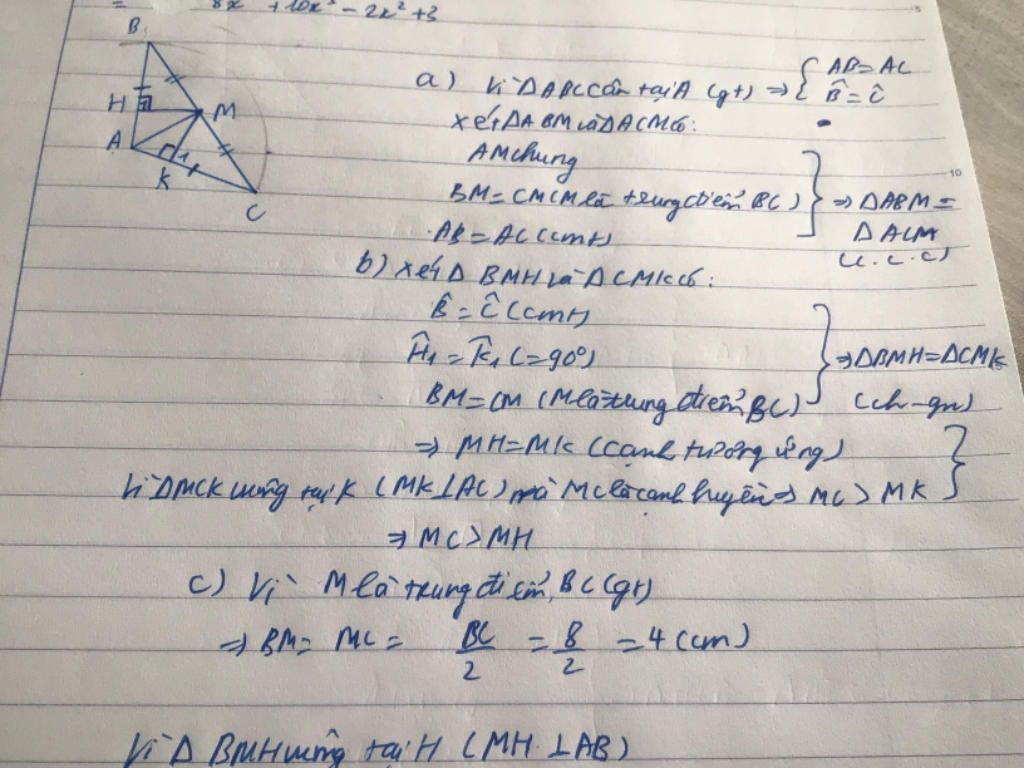 = 8x + 10x³ - 2x² + 3
B
H
M
A
K
1
C
a) Vì ΔABC cân tại A (gt) ⇒ { AB = AC
B̂ = Ĉ
Xét ΔABM và ΔACM có:
AM chung
BM = CM (M là trung điểm BC)
AB = AC (cmt)
} ⇒ ΔABM =
ΔACM
(c.c.c)
b) Xét Δ BMH và ΔCMK có:
B̂ = Ĉ (cmt)
Ĥ₁ = K̂₁ (= 90°)
BM = CM (M là trung điểm BC)
} ⇒ ΔBMH = ΔCMK
(ch-gn)
⇒ MH = MK (cạnh tương ứng)
Vì ΔMCK vuông tại K (MK ⊥ AC) mà MC là cạnh huyền ⇒ MC > MK }
⇒ MC > MH
c) Vì M là trung điểm BC (gt)
⇒ BM = MC = BC/2 = 8/2 = 4 (cm)
Vì Δ BMH vuông tại H (MH ⊥ AB)
5
10